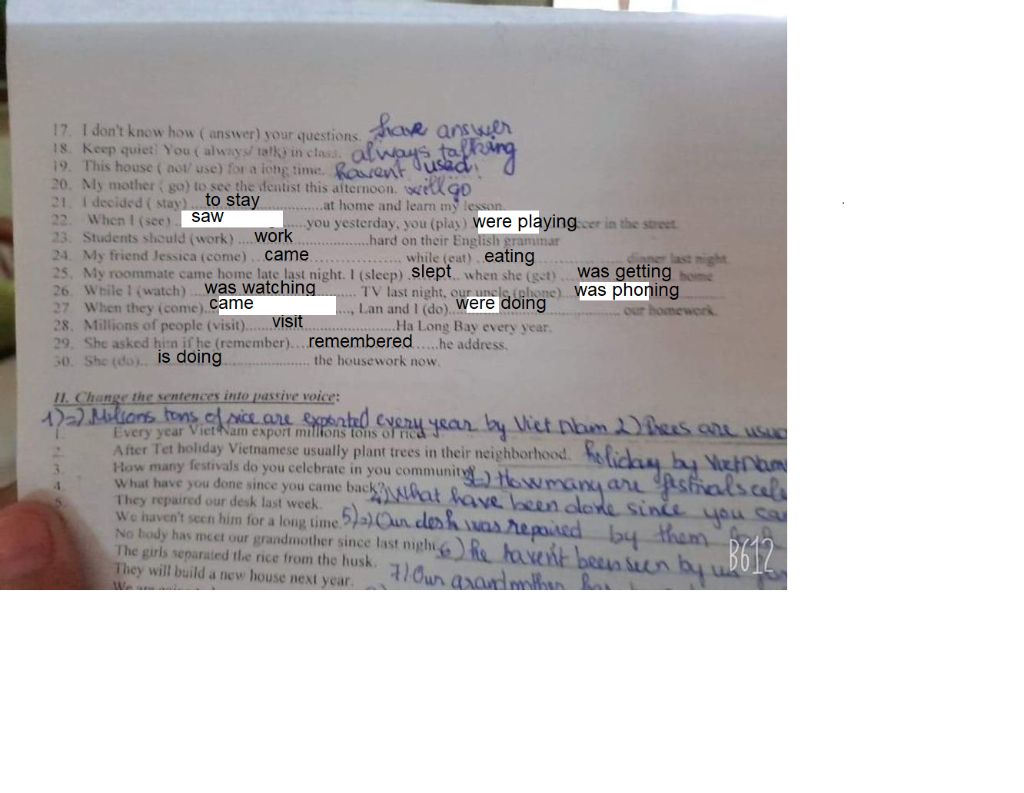 17. I don't know how ( answer) your questions. have answer
18. Keep quiet! You ( always/ talk) in class. always talking
19. This house ( not/ use) for a long time. haven't used.
20. My mother ( go) to see the dentist this afternoon. will go
21. I decided ( stay) to stay ..............at home and learn my lesson.
22. When I (see) saw .....you yesterday, you (play) were playing cer in the street.
23. Students should (work) .... work ................hard on their English grammar
24. My friend Jessica (come) .. came ............... while (eat) eating dinner last night.
25. My roommate came home late last night. I (sleep) .slept .. when she (get) was getting home
26. While I (watch) was watching .......... TV last night, our uncle (phone) was phoning
27 When they (come).. came , Lan and I (do).. were doing our homework.
28. Millions of people (visit).... visit ....................Ha Long Bay every year.
29. She asked him if he (remember).... remembered .....he address.
30. She (do).. is doing ................... the housework now.
II. Change the sentences into passive voice:
1)=) Milions tons of rice are exported every year by Viet Nam 2) Trees are usua
1. Every year Viet Nam export millions tons of rice
2. After Tet holiday Vietnamese usually plant trees in their neighborhood. holiday by VietNam
3. How many festivals do you celebrate in you community? 3) How many are festivals cele
4. What have you done since you came back? 4) What have been done since you ca
5. They repaired our desk last week. 5)=) Our desk was repaired by them
We haven't seen him for a long time. 6) he haven't been seen by us for
No body has meet our grandmother since last night.
The girls separated the rice from the husk. 7) Our grandmother has
They will build a new house next year.
B612